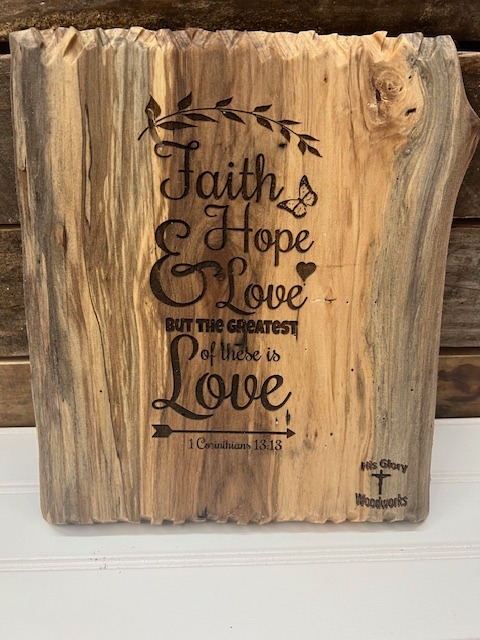 Faith
Hope
& Love
BUT THE GREATEST
of these is
Love
1 Corinthians 13:13
His Glory
Woodworks